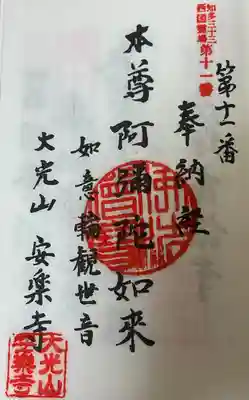 知多三十三
西国霊場第十一番
第十一番
奉納経
本尊阿彌陀如来
如意輪観世音
大光山 安楽寺
大光山
安楽寺